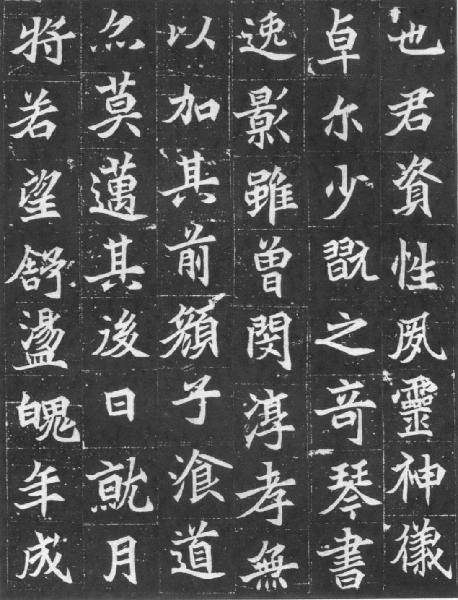 也君資性夙靈神儀
卓尓少翫之奇琴書
逸影雖曾閔淳孝無
以加其前顔子飡道
亦莫邁其後日就月
將若望舒盪魄年成